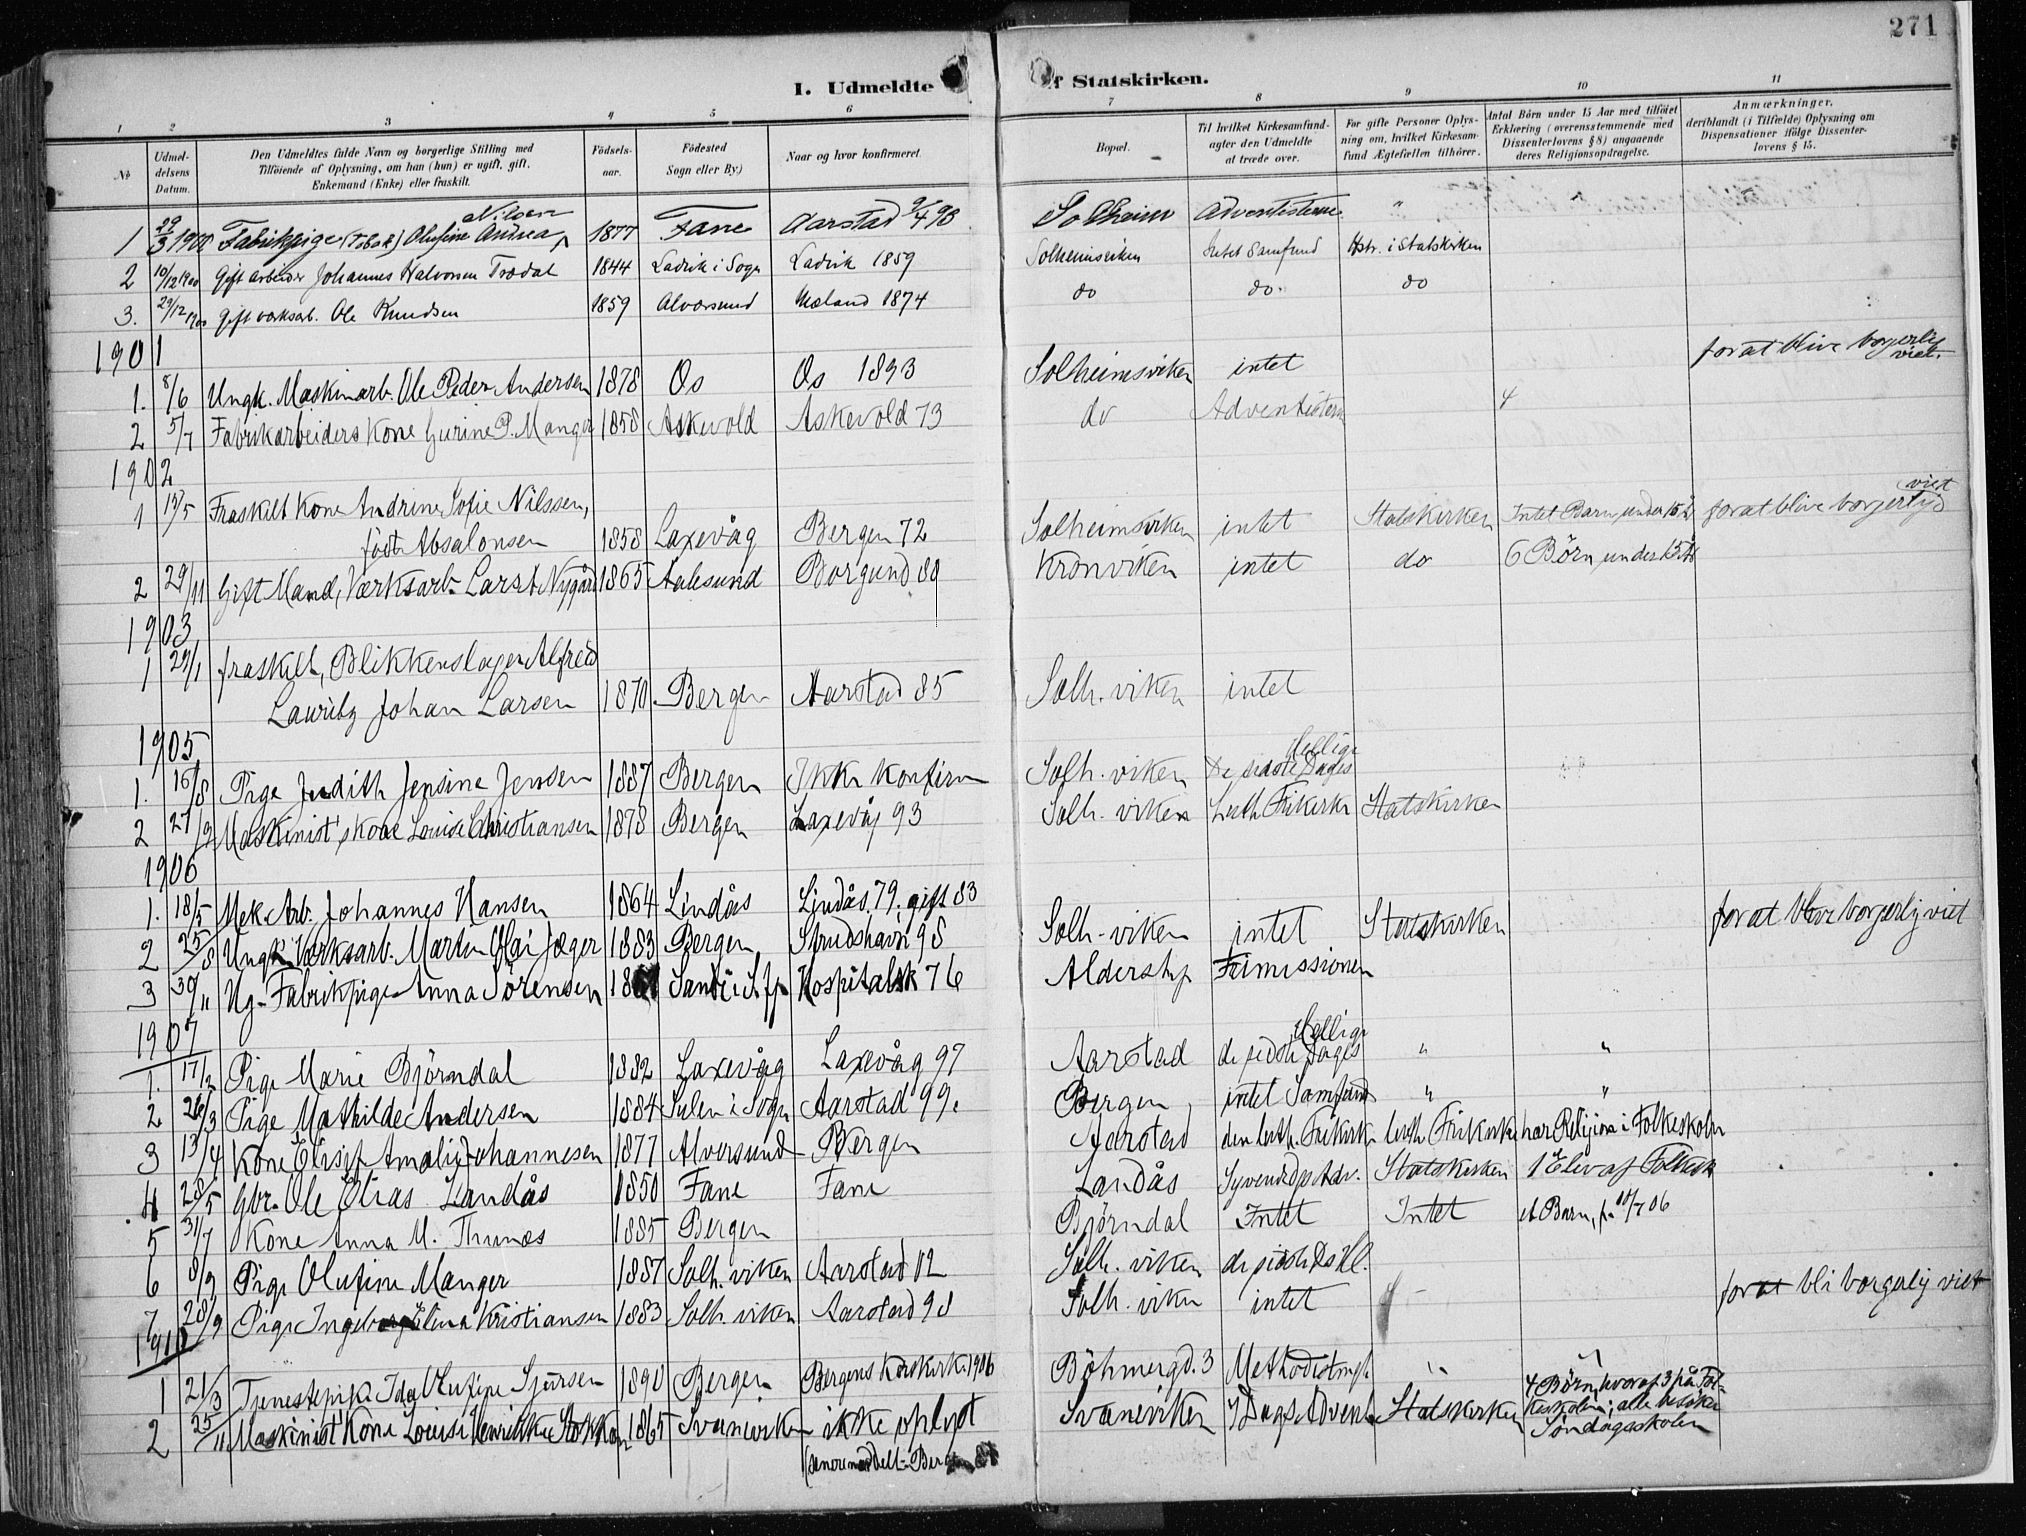 271
I. Udmeldte af Statskirken.
1 2 3 4 5 6 7 8 9 10 11
No Udmeldelsens Datum. Den Udmeldtes fulde Navn og borgerlige Stilling med Tilføiende af Oplysning, om han (hun) er ugift, gift, Enkemand (Enke) eller fraskilt. Fødselsaar. Fødested Sogn eller By.) Naar og hvor konfirmeret. Bopæl. Til hvilket Kirkesamfund agter den Udmeldte at træde over. For gifte Personer Oplysning om, hvilket Kirkesamfund Ægtefællen tilhører. Antal Börn under 15 Aar med tilföiet Erklæring (overensstemmende med Dissenterlovens § 8) angaaende deres Religionsopdragelse. Anmærkninger, deriblandt (i Tilfælde) Oplysning om Dispensationer ifölge Dissenterlovens § 15.
1 29/3 1900 Fabrikpige (Tobak) Olufine Andrea Nilsen 1877 Fane Aarstad 9/4 93 Solheim Adventisterne "
2 10/12 1900 Gift arbeider Johannes Halvorsen Trædal 1844 Ladvik i Sogn Ladvik 1859 Solheimsviken Intet Samfund Hstr. i Statskirken
3. 29/12 1900 Gift værksarb. Ole Knudsen 1859 Alversund Mæland 1874 do do. do
1901
1. 8/6 Ungk. Maskinarb. Ole Peder Andersen 1878 Os Os 1893 Solheimsviken intet for at blive borgerlig viet.
2 5/7 Fabrikarbeiders Kone Gurine P. Manger 1858 Askevold Askevold 73 do Adventistern 4
1902
1 13/5 Fraskilt Kone Andrine Sofie Nilssen,
født Absalonsen 1858 Laxevåg Bergen 72 Solheimsviken intet Statskirken Intet Barn under 15 år for at blive borgerlig viet
2 29/11 Gift Mand, Værksarb. Lars A Nygård 1865 Aalesund Borgund 80 Kronviken intet do 6 Børn under 15 år
1903
1 29/1 fraskilt, Blikkenslager Alfred
Lauritz Johan Larsen 1870 Bergen Aarstad 85 Solh. viken intet
1905
1. 16/8 Pige Judith Jensine Jensen 1887 Bergen Ikke Konfirm Solh. viken De sidste Dages Hellige
2 27/9 Maskinist's kone Louise Christiansen 1878 Bergen Laxevåg 93 Solh. viken Luth. Frikirke Statskirken
1906
1. 18/5 Mek. Arb. Johannes Hansen 1864 Lindås Lindås 79. gift 83 Solh-viken intet Statskirken for at blive borgerlig viet
2 25/8 Ungk. Værksarb. Martin Olai Jæger 1883 Bergen Strudshavn 98
3 30/11 Ug. Fabrikpige Anna Sörensen Sande i Sfj Hospitalsk 76 Aldershj Frimissionen
1907
1. 17/2 Pige Marie Björndal 1882 Laxevåg Laxevåg 97 Aarstad de sidste Dages Hellige " "
2 26/3 Pige Mathilde Andersen 1884 Sulen i Sogn Aarstad 99. Bergen intet Samfund " "
3 13/4 Kone Elisif Amalie Johannesen 1877 Alversund Bergen Aarstad den luth. Frikirke luth. Frikirke har Religion i Folkeskolen
4 28/5 Gbr. Ole Elias Landås 1850 Fane Fane Landås Syvendedgs Adv. Statskirken 1 Elev af Folkesk
5 31/7 Kone Anna M. Thunes 1885 Bergen Björndal Intet Intet et Barn, f. 10/7 06
6 8/9 Pige Olufine Manger 1887 Solh. viken Aarstad 02 Solh. viken de sidste Ds Hl.
7 28/9 Pige Ingeborg Elina Kristiansen 1883 Solh. viken Aarstad 98 Solh. viken intet for at bli borgerlig viet
1910
1 21/3 Tjenestepike Ida Olufine Sjursen 1890 Bergen Bergens Korskirk. 1906 Böhmergd. 3 Methodistmgh. "
2 25/11 Maskinist Kone Louise Henrikke Stokken 1865 Svaneviken ikke oplyst Svaneviken 7 Dags Advent Statskirken 4 Börn, hvoraf 3 på Folkeskolen; alle besöker Söndagsskolen
(senere meddelt: Bergen 81